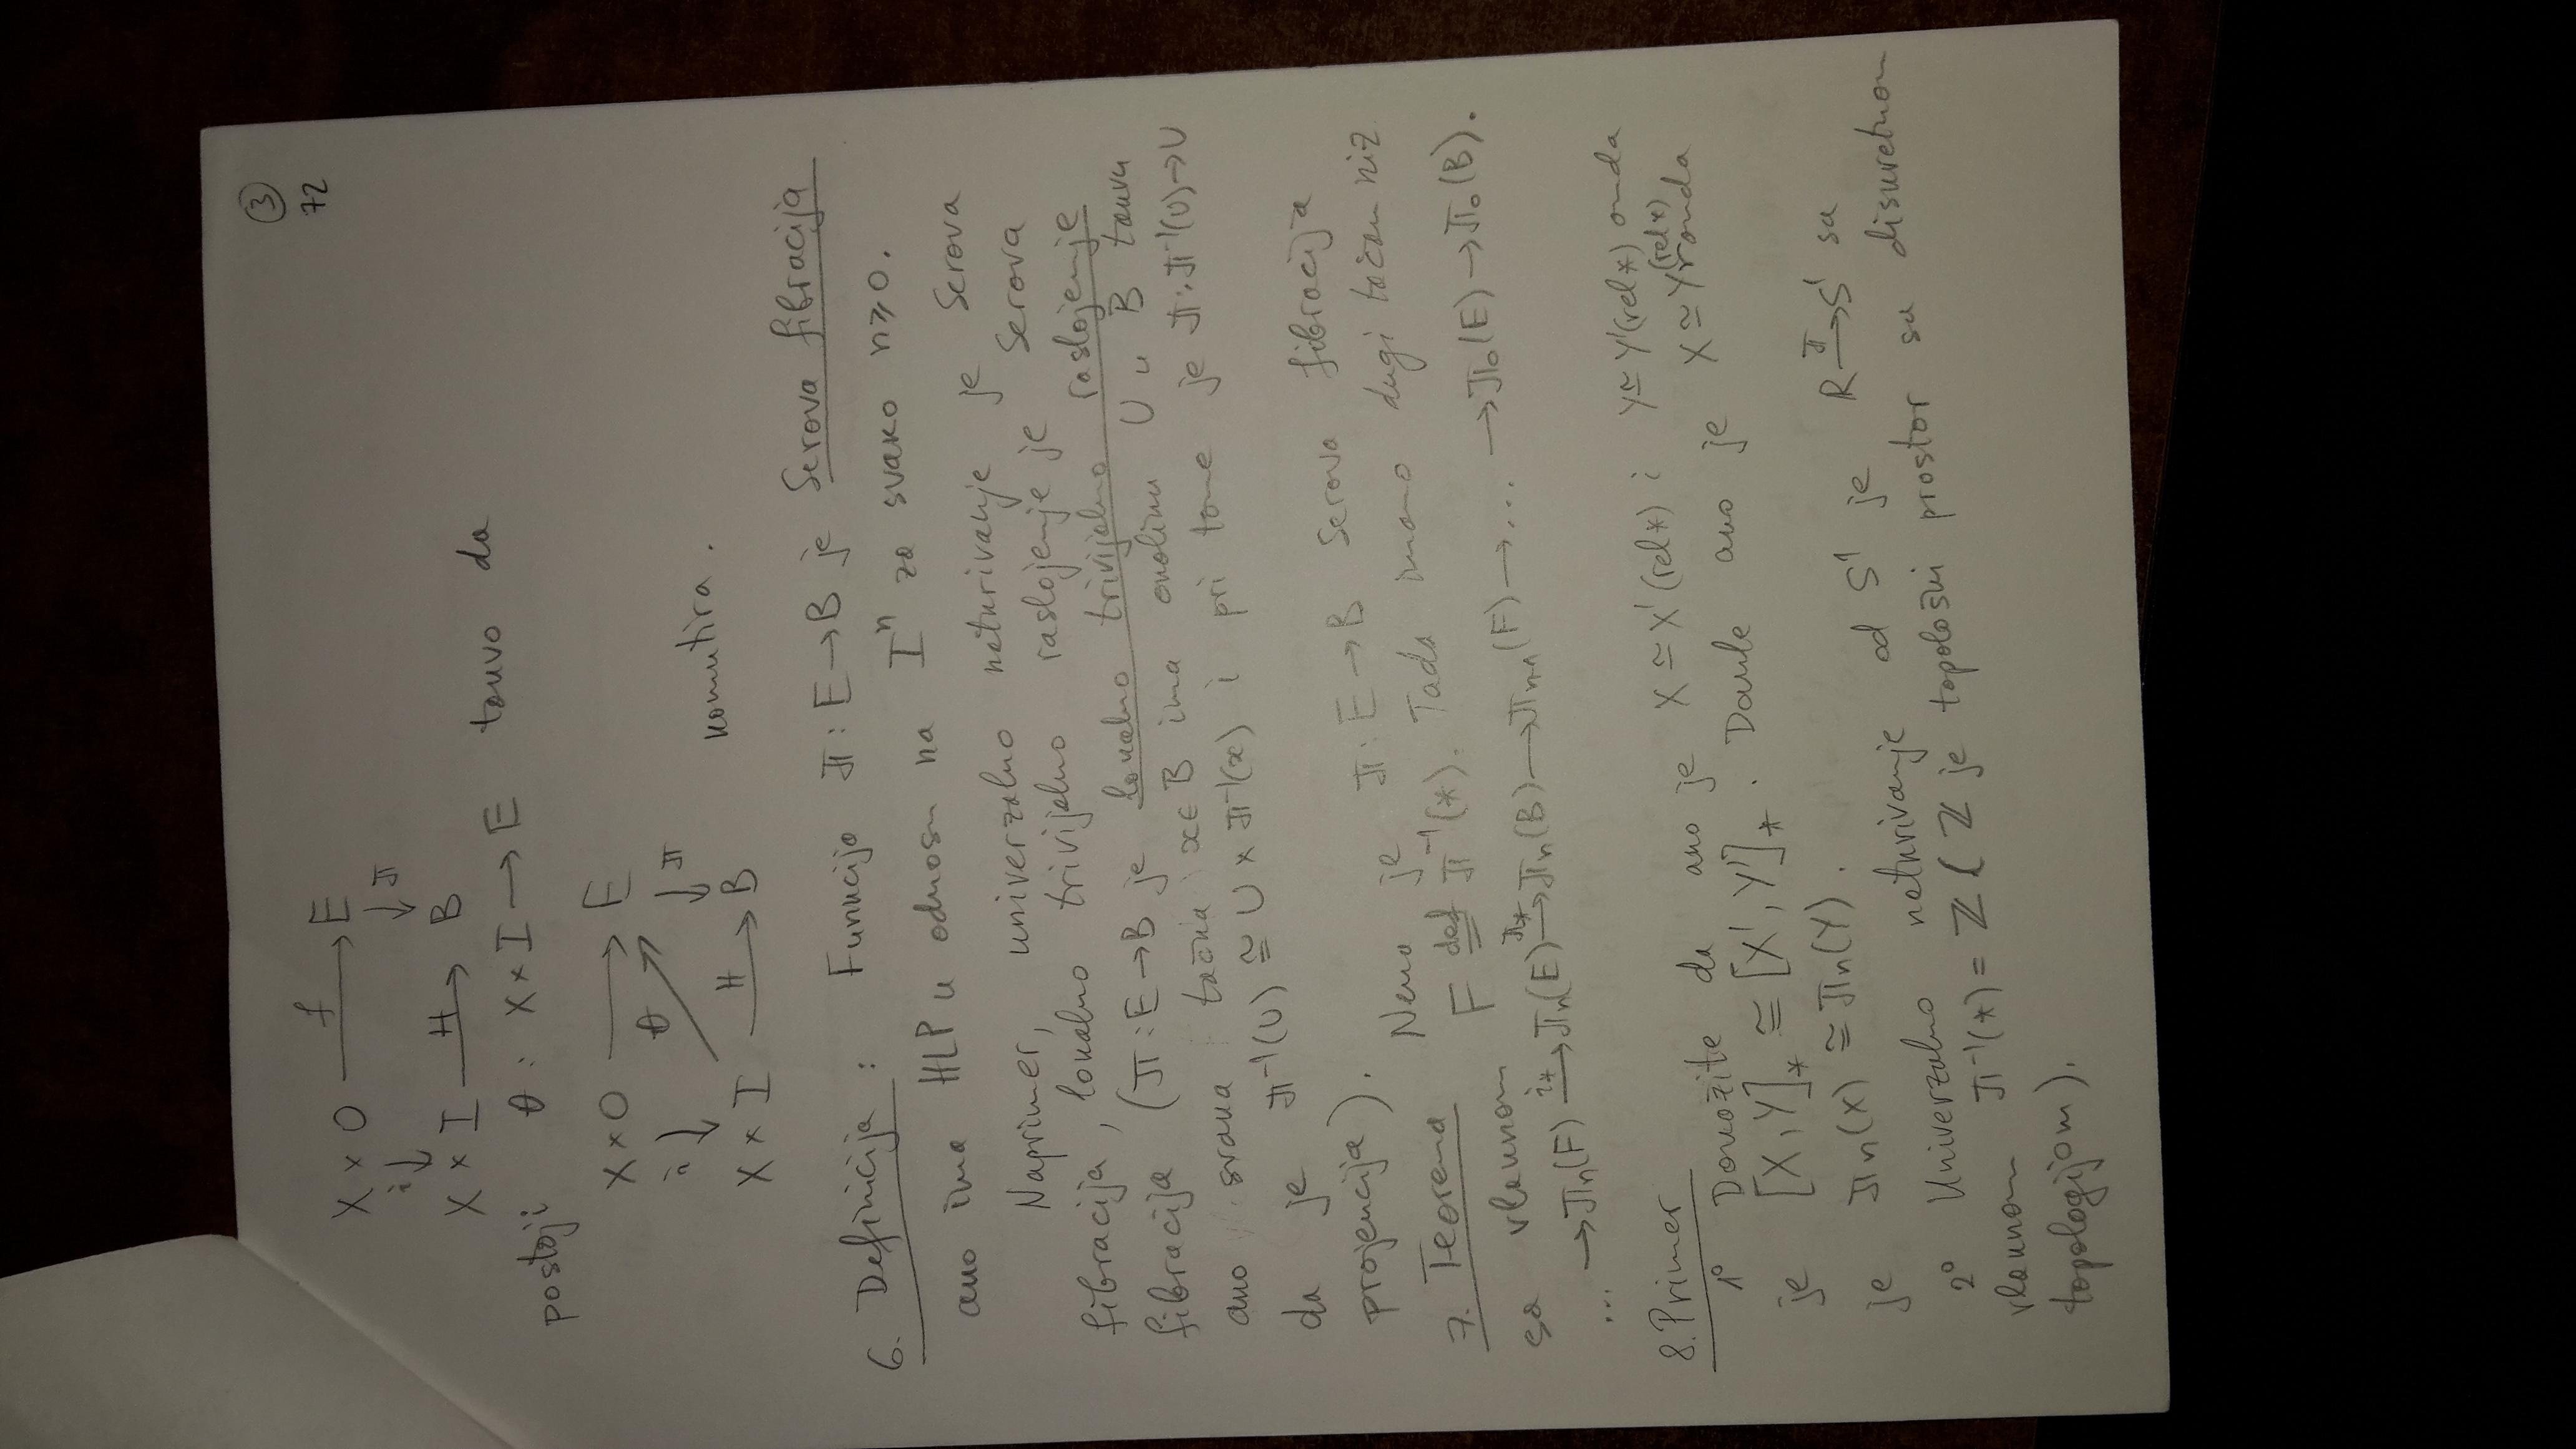 ③
72
X × 0 —f→ E
i↓ ↓π
X × I —H→ B
postoji θ : X × I → E takvo da
X × 0 → E
i↓ θ ↗ ↓π
X × I —H→ B komutira.
6. Definicija : Funkcija π : E → B je Serova fibracija
ako ima HLP u odnosu na Iⁿ za svako n ≥ 0.
Naprimer, univerzalno natkrivanje je Serova
fibracija, lokalno trivijalno raslojenje je Serova
fibracija (π : E → B je lokalno trivijalno raslojenje
ako svaka tačka x ∈ B ima okolinu U u B takvu
da je π⁻¹(U) ≅ U × π⁻¹(x) i pri tome je π : π⁻¹(U) → U
projekcija).
7. Teorema Neka je π : E → B Serova fibracija
sa vlaknom F def= π⁻¹(*). Tada imamo dugi tačan niz
... → πn(F) i*→ πn(E) π*→ πn(B) → πn-1(F) → ... → π₀(E) → π₀(B).
8. Primer
1° Dokažite da ako je X ≃ X' (rel *) i Y ≃ Y' (rel *) onda
je [X, Y]* ≅ [X', Y']*. Dakle ako je X ≃ Y (rel *) onda
je πn(X) ≅ πn(Y).
2° Univerzalno natkrivanje od S¹ je R —π→ S¹ sa
vlaknom π⁻¹(*) = Z ( Z je topološki prostor sa diskretnom
topologijom).